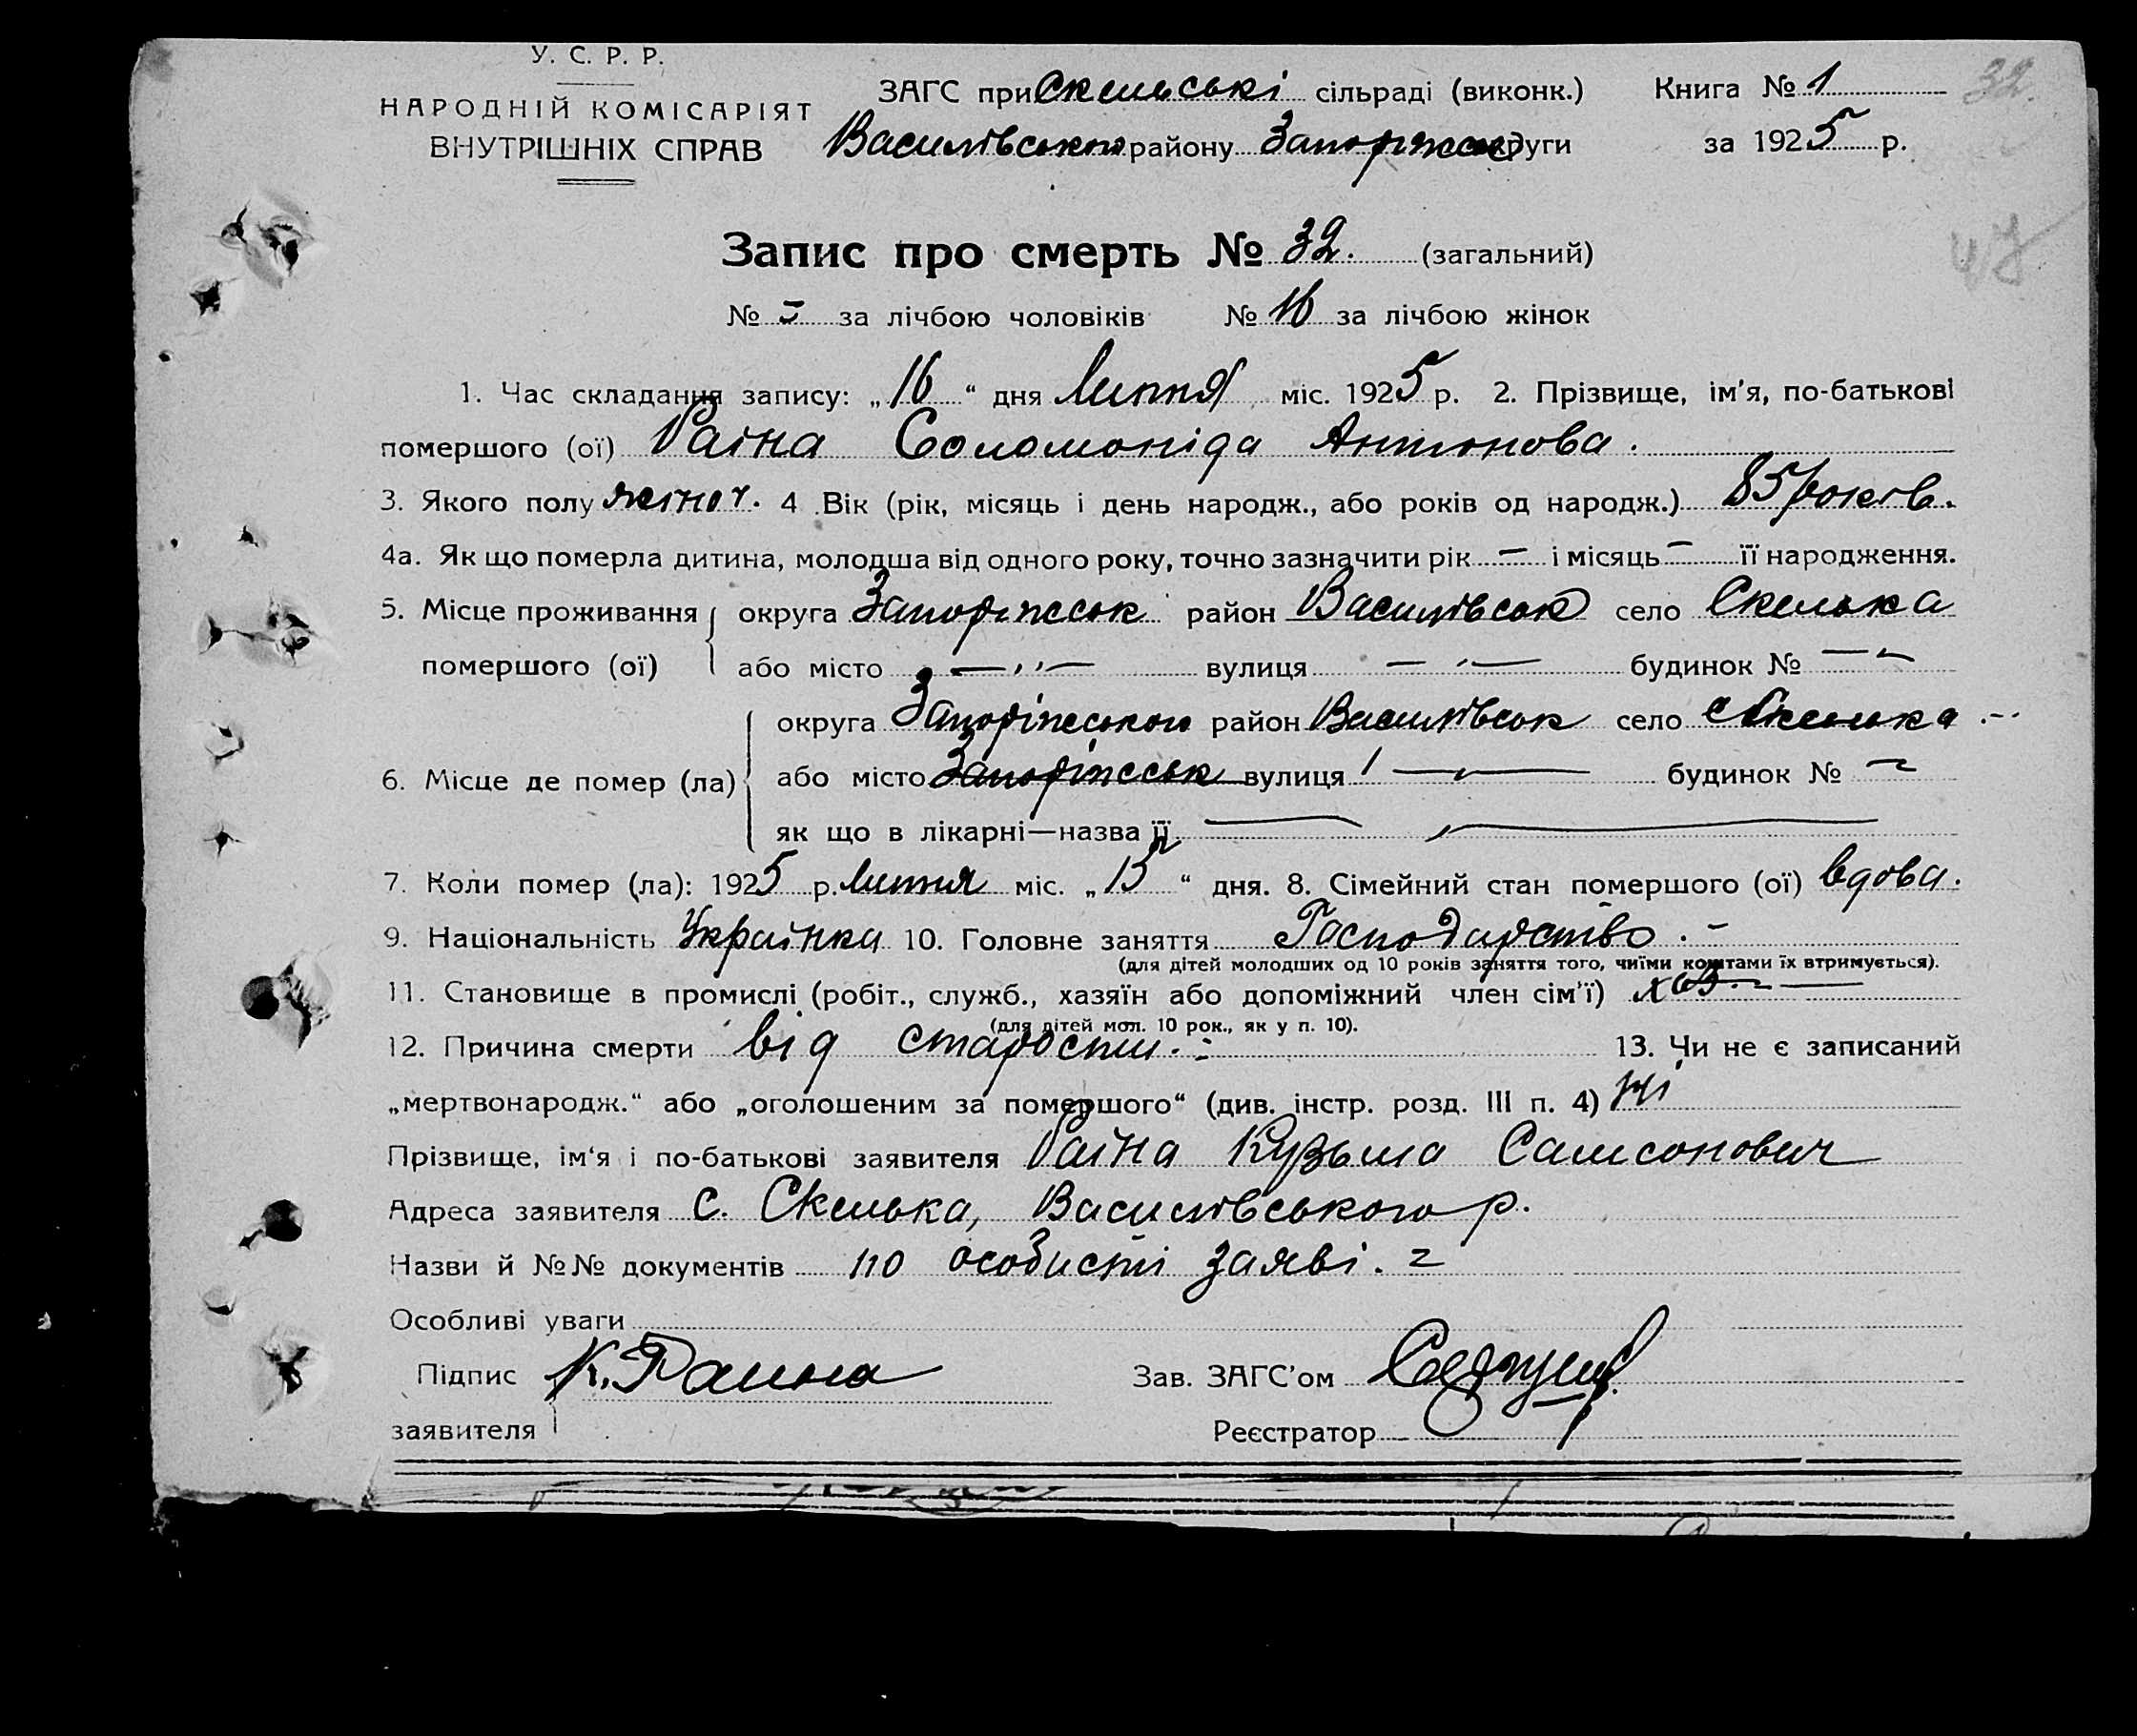 У. С. Р. Р.
НАРОДНІЙ КОМІСАРІЯТ
ВНУТРІШНІХ СПРАВ
ЗАГС при Скельські сільраді (виконк.)
Василівського району Запоріжськ округи
Книга № 1
за 1925 р.
32.
47
Запис про смерть № 32. (загальний)
№ - за лічбою чоловіків № 16 за лічбою жінок
1. Час складання запису: „16“ дня Липня міс. 1925 р. 2. Прізвище, ім'я, по-батькові
помершого (ої) Раіна Соломоніда Антонова.
3. Якого полу жіноч. 4 Вік (рік, місяць і день народж., або років од народж.) 85 років.
4а. Як що померла дитина, молодша від одного року, точно зазначити рік — і місяць — її народження.
5. Місце проживання помершого (ої) округа Запоріжськ район Василівськ село Скелька
або місто —„— вулиця —„— будинок № —„
6. Місце де помер (ла) округа Запоріжського район Василівськ село Скелька
або місто Запоріжськ вулиця — будинок № —
як що в лікарні—назва її —
7. Коли помер (ла): 1925 р. Липня міс. „15“ дня. 8. Сімейний стан помершого (ої) вдова.
9. Національність Украінка 10. Головне заняття Господарство. -
(для дітей молодших од 10 років заняття того, чиїми коштами їх втримується).
11. Становище в промислі (робіт., служб., хазяїн або допоміжний член сім'ї)
(для дітей мол. 10 рок., як у п. 10).
12. Причина смерти від старости. 13. Чи не є записаний
„мертвонародж.“ або „оголошеним за помершого“ (див. інстр. розд. III п. 4) ні
Прізвище, ім'я і по-батькові заявителя Раіна Кузьма Самсонович
Адреса заявителя с. Скелька, Василівського р.
Назви й №№ документів по особисті заяві.
Особливі уваги
Підпис заявителя К. Раина
Зав. ЗАГС'ом
Реєстратор